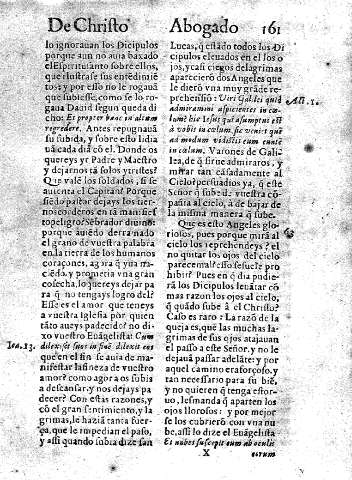 De Christo Abogado 161
lo ignorauan los Dicipulos
porque aun no auia baxado
el Espiritu santo sobre ellos,
que ilustrase sus entẽdimiẽ
tos; y por esso no le rogauã
que subiesse, como se lo ro-
gaua Dauid segun queda di
cho: Et propter hanc in altum
regredere. Antes repugnauã
su subida, y sobre esto lidia
uã cada dia cõ el. Donde os
quereys yr Padre y Maestro
y dejarnos tã solos y tristes?
Que valẽ los soldados, si se
auienta el Capitan? Porque
siẽdo pastor dejays los tier-
nos corderos en tã manifies
to peligro? Sebrador diuino
porque auiẽdo derramado
el grano de vuestra palabra
en la tierra de los humanos
coraçones, agora q̃ yua na-
ciẽdo, y prometia vna gran
cosecha, lo quereys dejar pa
ra q̃ no tengays logro del?
Esse es el amor que teneys
a vuestra Iglesia por quien
tãto aueys padecido? no di-
xo vuestro Euãgelista: Cum
Ioa. 13. dilexisset suos in finẽ dilexit eos
que en el fin se auia de ma-
nifestar la fineza de vuestro
amor? como agora os subis
a descansar, y nos dejays pa
decer? Con estas razones, y
cõ el gran sentimiento, y la
grimas, le haziã tanta fuer-
ça, que le impedian el paso,
y assi quando subia dize san
Lucas, q̃ estãdo todos los Di
cipulos eleuados en el los o
jos, y casi ciegos de lagrimas
aparecierõ dos Angeles que
le dierõ vna muy grãde re-
prehensiõ: Viri Galilei quid Act. 1.
admiramini aspicientes in cæ-
lum? hic Iesus qui asumptus est
à vobis in cælum, sic veniet que
ad modum vidistis eum eunte
in cælum. Varones de Gali-
lea, de q̃ sirue admiraros, y
mirar tan cãsadamente al
Cielo? persuadios ya, q̃ este
Señor q̃ sube à vuestra cõ
pañia al cielo, à de bajar de
la misma manera q̃ sube.
Que es esto Angeles glorio-
sos, pues porque mirã al
cielo los reprehendeys? el
no quitar los ojos del cielo
parece mal? esso se sufre? pro
hibir? Pues en q̃ dia pudie-
rã los Dicipulos leuãtar cõ
mas razon los ojos al cielo,
q̃ quãdo sube à el Christo?
Caso es raro: La razõ de la
queja es, que las muchas la-
grimas de sus ojos atajauan
el passo a este Señor, y no le
dejauã passar adelãte; y por
aquel camino era forçoso, y
tan necessario para su biẽ,
y no quieren q̃ tenga estor-
uo, les mandã q̃ aparten los
ojos llorosos: y por mejor
se los cubrierõ con vna nu
be, assi lo dize el Euãgelista
Et nubes suscepit eum ab oculis
X eorum